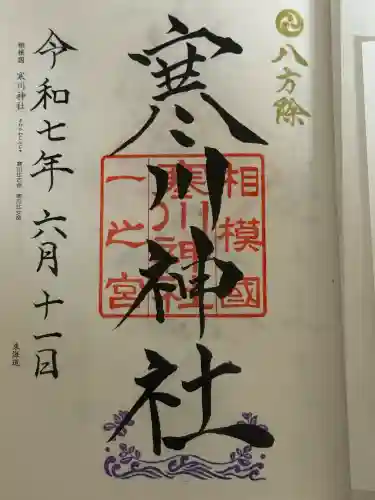 八方除
寒川神社
相模國
寒川神社
一之宮
令和七年 六月 十一日
相模國 寒川神社
東海道